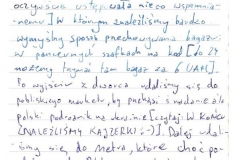 oczywiście ustępowała nieco wspomnia-
nemu] w którym znaleźliśmy bardzo
wymyślny sposób przechowywania bagażu
w pancernych szafkach na kod [do 24
możemy trzymać tam bagaż za 6 UAH].
Po wyjściu z dworca udaliśmy się do
pobliskiego marketu, by pochłonąć śniadanie alá
polski podróżnik na ukrainie [czytaj: W KOŃCU
ZNALEŹLIŚMY KAJZERKI :-)]. Dalej udali-
śmy się do metra, które choć po-